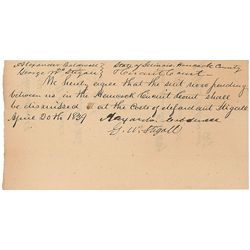 Alexander Caldwell } State of Illinois Hancock County
George W. Stigall } Circuit Court
We hereby agree that the suit now pending
between us in the Hancock Circuit Court shall
be dismissed at the costs of defendant Stigall
April 20th 1839
G. W. Stigall